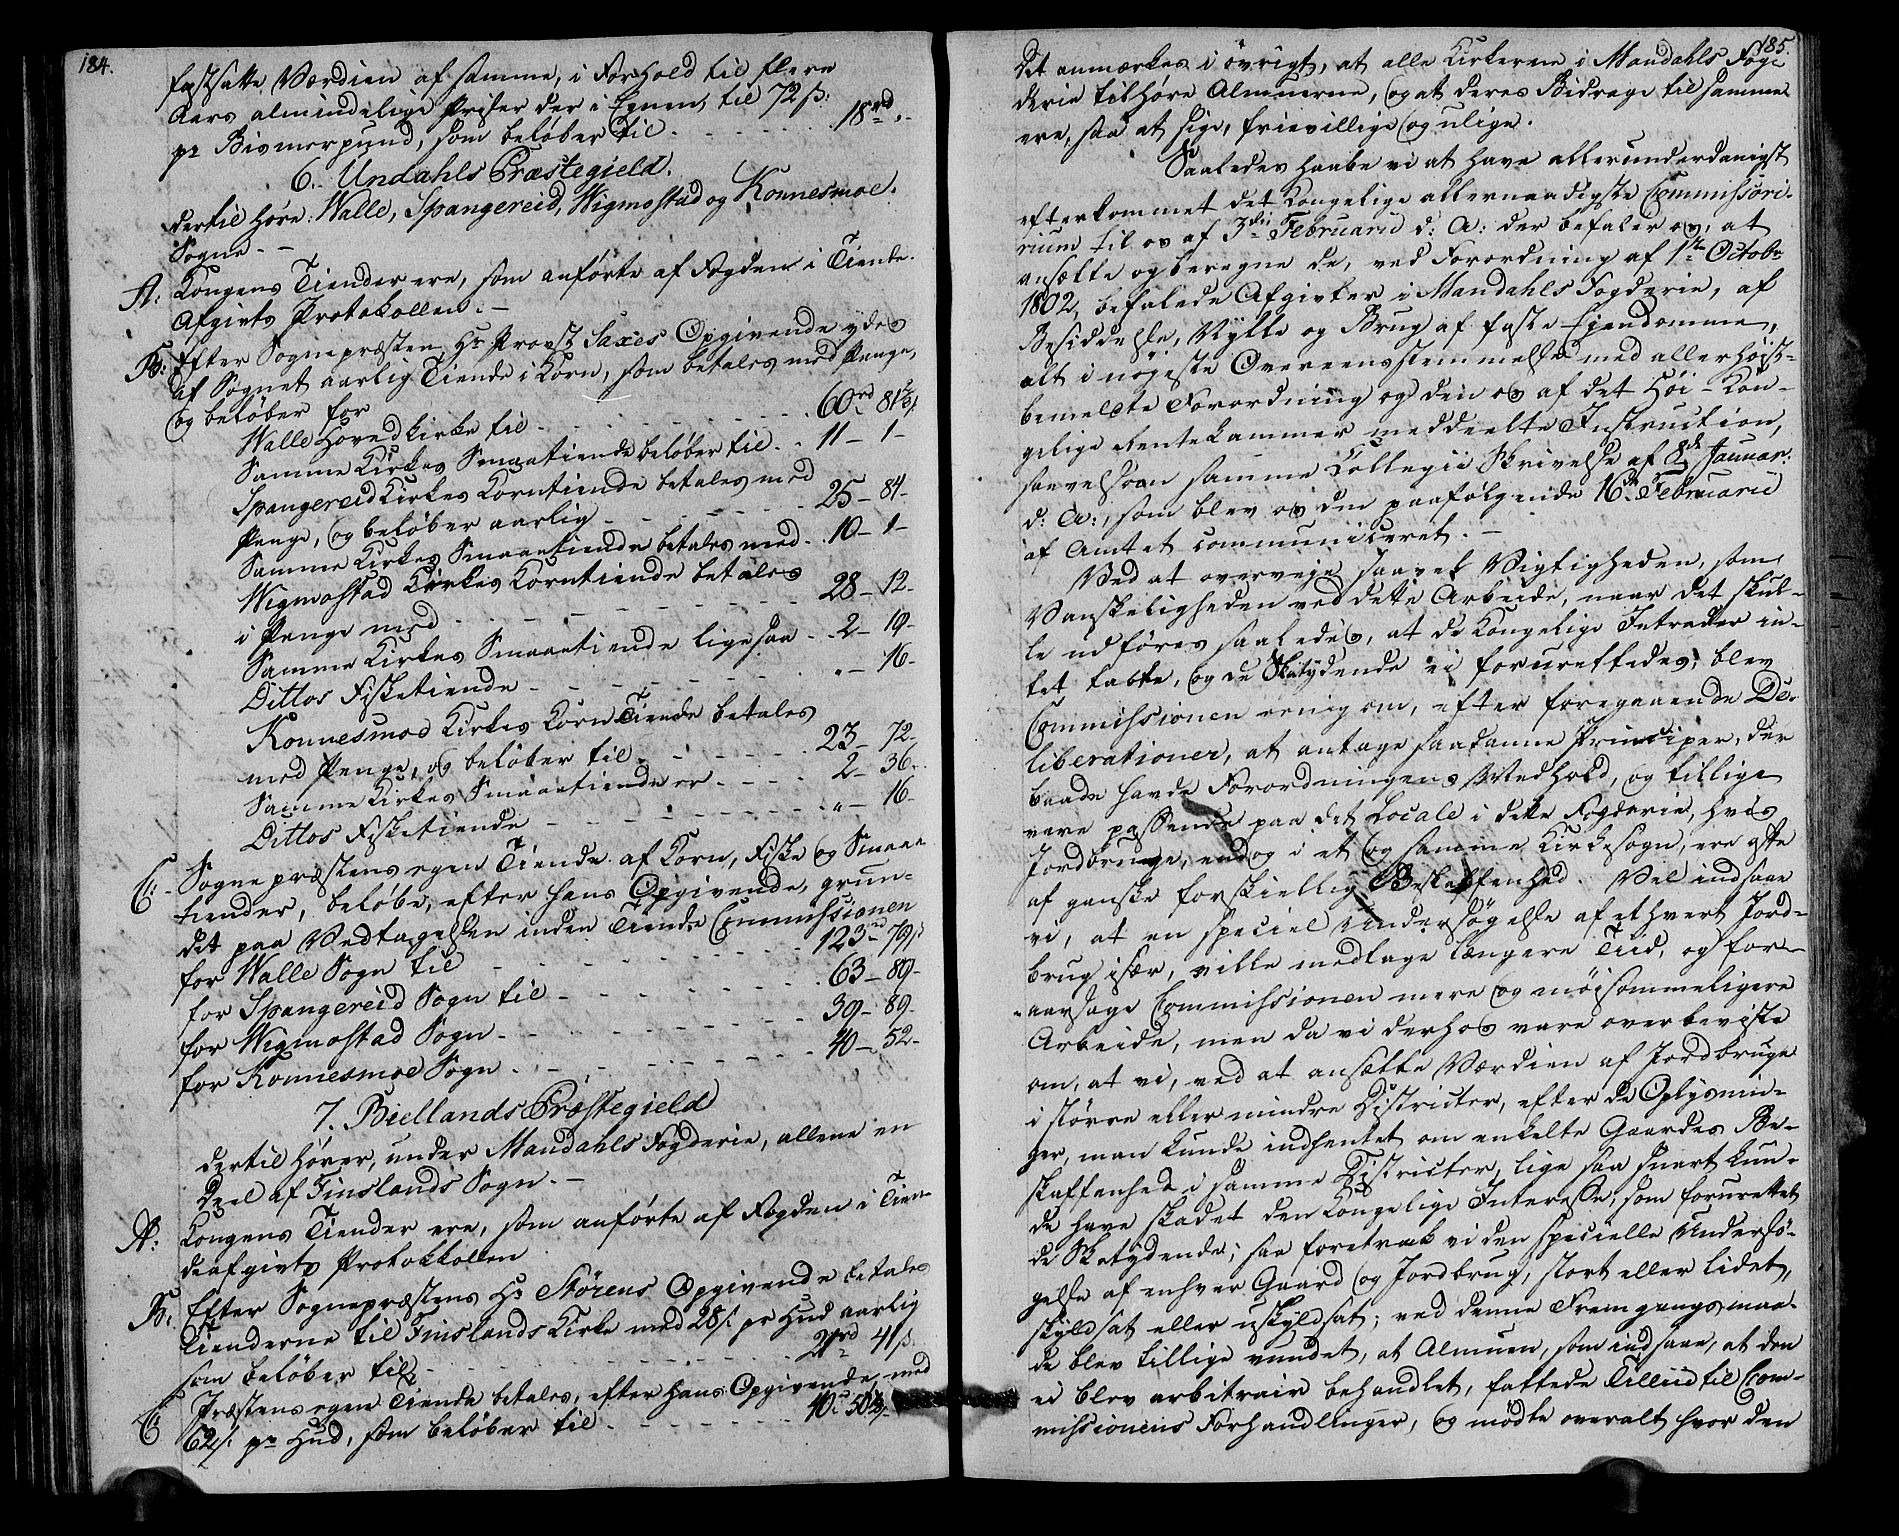 184.
fastsatte Værdien af samme, i Forhold til flere
Aars almindelige Priser der i Egnen, til 72 ß:
pr Bismerpund, som beløber til . . . . . 18rd „-
6. Undahls Præstegield.
dertil høre: Walle, Spangereid, Wigmostad og Konnesmoe.
Sogne. —
A: Kongens Tiender ere, som anførte af Fogden i Tiende-
Afgivts Protokollen. —
B: Efter Sognepræsten Hr Provst Saxes Opgivende ydes
af Sognet aarlig Tiende i Korn, som betales med Penge,
og beløber for
Walle Hovedkirke til . . . . . 60rd 81⅗ß
Samme Kirkes Smaatiende beløber til . 11 — 1 —
Spangereid Kirkes Korntiende betales med
Penge, og beløber aarlig . . . . . 25 — 84 —
Samme Kirkes Smaaetiende betales med . . 10 — 1 —
Wigmostad Kirkes Korntiende betales
i Penge med . . . . . 28 — 12 —
Samme Kirkes Smaaetiende ligesaa . . 2 — 19 —
Dittos Fisketiende . . . . . „ — 16 —
Konnesmod Kirkes Korn Tiende betales
med Penge, og beløber til . . . . . 23 — 72 —
Samme Kirkes Smaaetiende er . . . . 2 — 36 —
Dittos Fisketiende . . . . . „ — 16 —
C: Sognepræstens egen Tiende af Korn, Fiske og Smaae
tiender, beløbe, efter hans Opgivende, grun-
det paa Vedtagelsen inden Tiende Commissionen
for Walle Sogn til . . . . . 123rd 79ß
for Spangereid Sogn til . . . . . 63 — 89 —
for Wigmostad Sogn . . . . . 39 — 89 —
for Konnesmoe Sogn . . . . . 40 — 52 —
7. Biellands Præstegield
dertil hører, under Mandahls Fogderie, allene en
Deel af Finslands Sogn. —
A: Kongens Tiender ere, som anførte af Fogden i Tien-
deafgivts Protokkollen
B: Efter Sognepræstens Hr Störens Opgivende betales
Tienderne til Finslands Kirke med 28ß pr Hud aarlig
som beløber til . . . . . 21rd 41ß
C: Præstens egen Tiende betales, efter hans Opgivende, med
62ß. pr Hud, som beløber til . . . . .
185.
Det anmærkes i øvrigt, at alle Kirkerne i Mandahls Foge
derie tilhøre Almuerne, og at deres Bidrage til samme
ere, saa at sige, frievillige og ulige.
Saaledes haabe vi at have allerunderdanigst
efterkommet det Kongelige allernaadigste Commissori-
rium til os af 3die Februarii d: A: der befaler os, at
ansætte og beregne de, ved Forordning af 1ste Octobr
1802, befalede Afgivter i Mandahls Fogderie, af
Besiddelse, Nytte og Brug af faste Ejendomme,
alt i nøjeste Overeensstemmelse med allerhøist-
bemeldte Forordning og den os af det Høi-Kon-
gelige Rentekammer meddeelte Instruction,
saavelsom samme Collegii Skrivelse af 8de Januar:
d: A:, som blev os den paafølgende 16de Februarii
af Amtet communiceret. —
Ved at overveje saavel Vigtigheden, som
Vanskeligheden ved dette Arbeide, naar det skul-
le udføres saaledes, at de Kongelige Intrader in-
tet tabte, og de Skatydende ei forurettedes, blev
Commissionen eenig om, efter foregaaende De-
liberationer, at antage saadanne Principer, der
baade havde Forordningens Medhold, og tillige
vare passende paa det Locale i dette Fogderie, hvis
Jordbruge, endog i et og samme Kirkesogn, ere ofte
af ganske forskiellig Beskaffenhed. Vel indsaae
vi, at en speciel Undersøgelse af ethvert Jord-
brug især, ville medtage længere Tiid, og for-
aarsage Commissionen mere og møisommeligere
Arbeide, men da vi derhos vare overbeviste
om, at vi, ved at ansætte Værdien af Jordbruge
i større eller mindre Districter, efter de Oplysnin-
ger, man kunde indhentet om enkelte Gaardes Be-
skaffenhed i samme Districter, lige saa snart kun-
de have skadet den Kongelige Interesse, som forurettet
de Skatydende; saa foretrak vi den specielle Undersø-
gelse af enhver Gaard og Jordbrug, stort eller lidet,
skyldsat eller uskyldsat; ved denne Fremgangsmaa-
de blev tillige vundet, at Almuen, som indsaae, at den
ei blev arbitrair behandlet, fattede Tilliid til Com-
missionens Forhandlinger, og mødte overalt hvor den